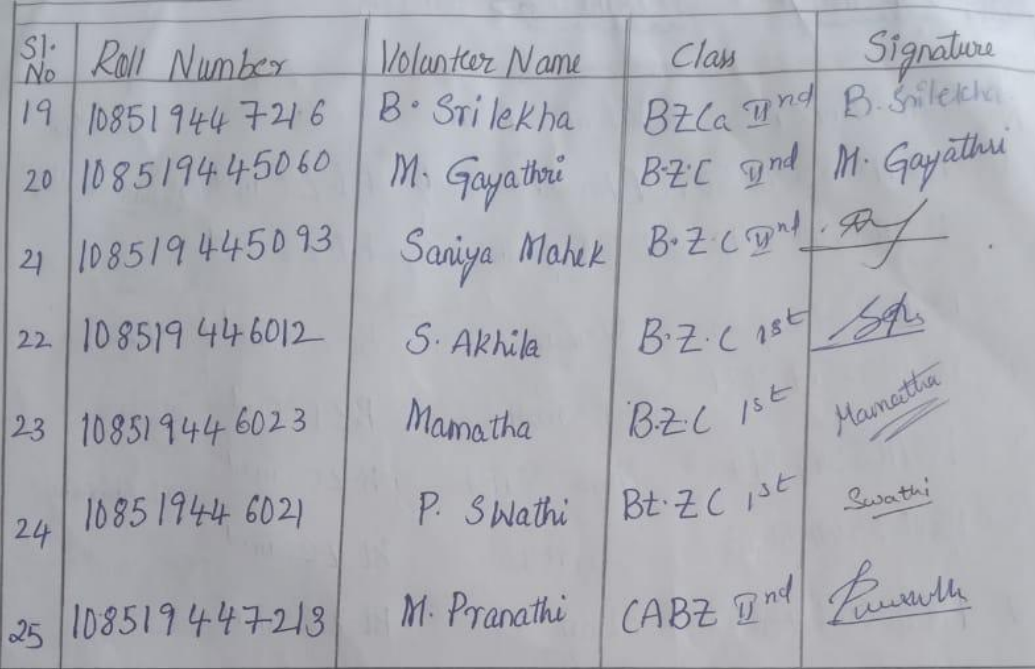 Sl. No Roll Number Volunteer Name Class Signature
19 108519447216 B. Srilekha BZCa IInd B. Srilekha
20 108519445060 M. Gayathri B.Z.C IInd M. Gayathri
21 108519445093 Saniya Mahek B.Z.C IInd
22 108519446012 S. Akhila B.Z.C 1st
23 108519446023 Mamatha B.Z.C 1st Mamatha
24 108519446021 P. Swathi Bt.ZC 1st Swathi
25 108519447213 M. Pranathi CABZ IInd